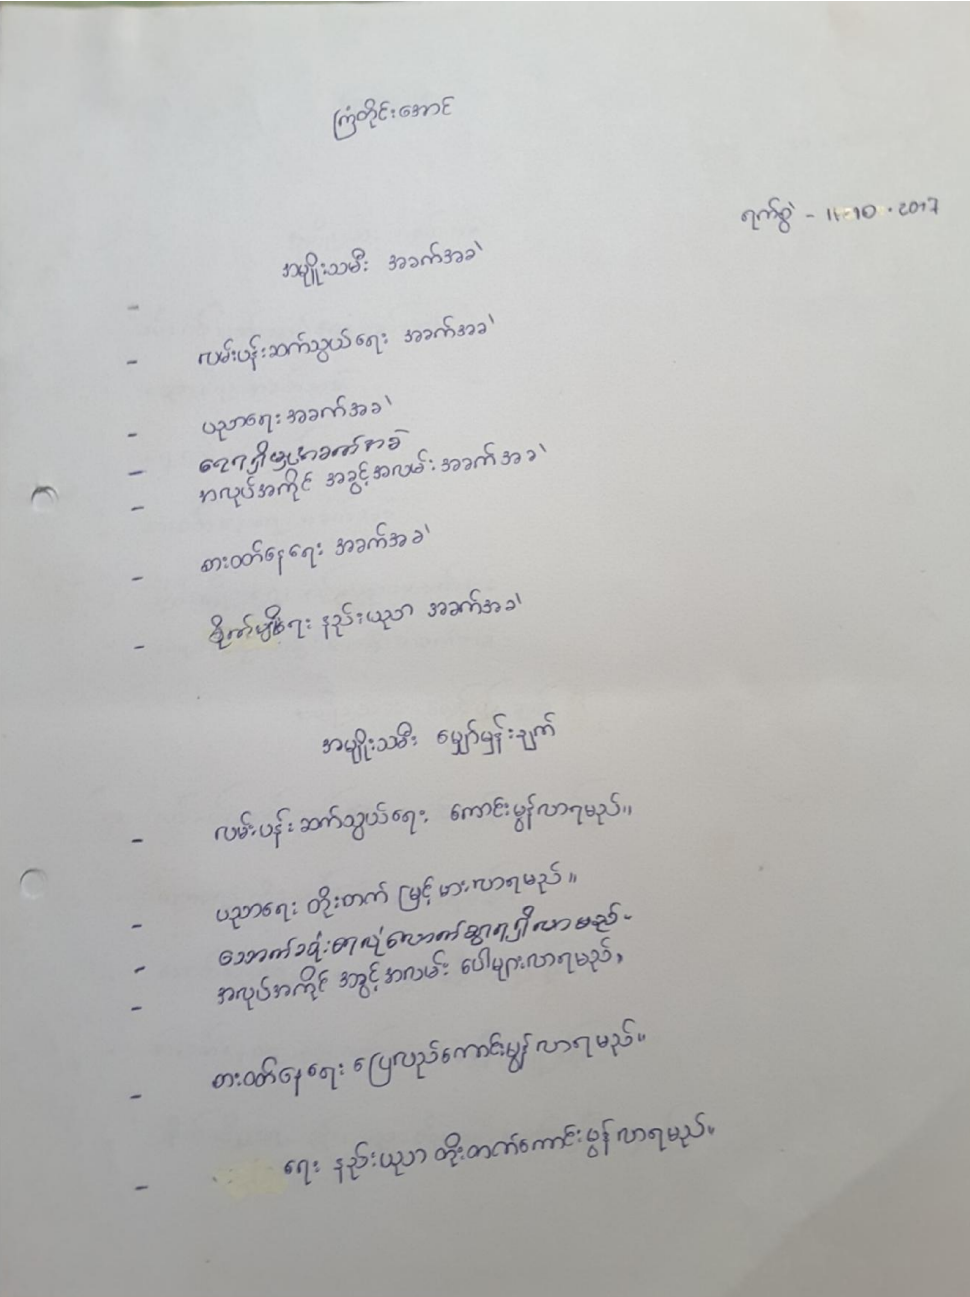 ကြံတိုင်းအောင်
ရက်စွဲ - 11-10-2017
အမျိုးသမီး အခက်အခဲ
-
- လမ်းပန်းဆက်သွယ်ရေး အခက်အခဲ
- ပညာရေးအခက်အခဲ
- ရေရရှိမှုအခက်အခဲ
- အလုပ်အကိုင် အခွင့်အလမ်းအခက်အခဲ
- စားဝတ်နေရေး အခက်အခဲ
- စိုက်ပျိုးရေး နည်းပညာ အခက်အခဲ
အမျိုးသမီး မျှော်မှန်းချက်
- လမ်းပန်းဆက်သွယ်ရေး ကောင်းမွန်လာရမည်။
- ပညာရေး တိုးတက် မြင့်မားလာရမည်။
- သောက်သုံးရေလုံလောက်စွာရရှိလာမည်။
- အလုပ်အကိုင် အခွင့်အလမ်း ပေါများလာရမည်။
- စားဝတ်နေရေး ပြေလည်ကောင်းမွန်လာရမည်။
- ရေး နည်းပညာ တိုးတက်ကောင်းမွန်လာရမည်။